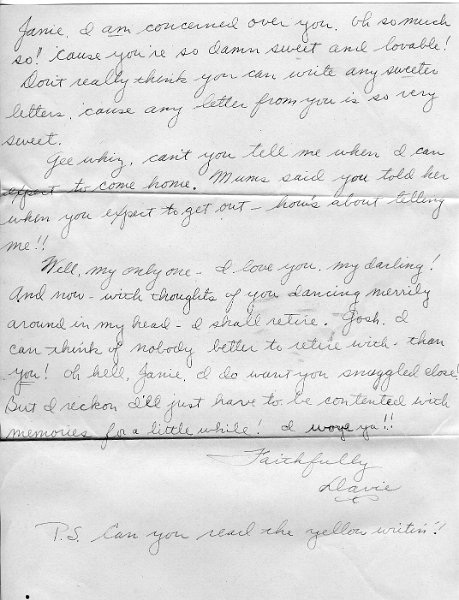 Janie, I am concerned over you. Oh so much
so! 'cause you're so damn sweet and lovable!
Don't really think you can write any sweeter
letters, 'cause any letter from you is so very
sweet.
Gee whiz, can't you tell me when I can
expect to come home. Mums said you told her
when you expect to get out - how's about telling
me!!
Well, my only one - I love you, my darling!
And now - with thoughts of you dancing merrily
around in my head - I shall retire. Gosh, I
can think of nobody better to retire with - than
you! Oh hell, Janie, I do want you snuggled close!
But I reckon I'll just have to be contented with
memories for a little while! I wove ya!!
Faithfully
Davie
P.S. Can you read the yellow writin'!